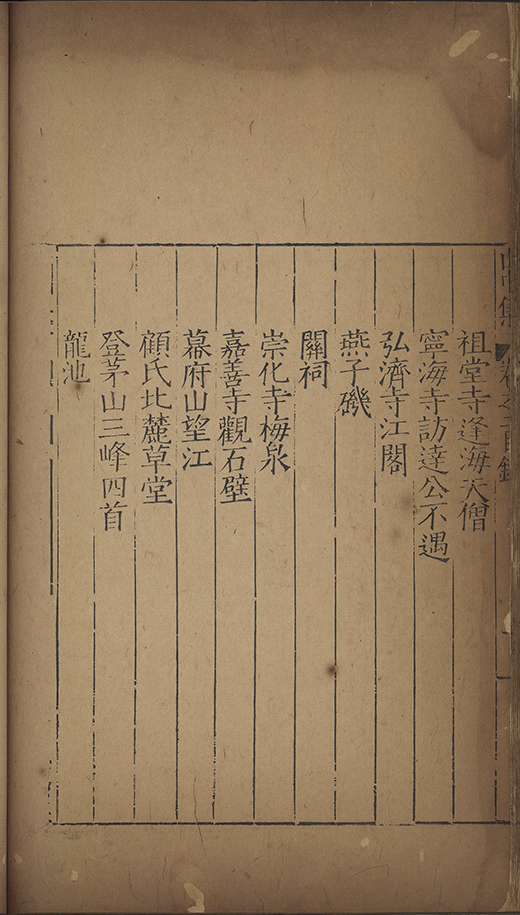 祖堂寺逢海天僧
寧海寺訪達公不遇
弘濟寺江閣
燕子磯
關祠
崇化寺梅泉
嘉善寺觀石壁
幕府山望江
顧氏北麓草堂
登茅山三峰四首
龍池